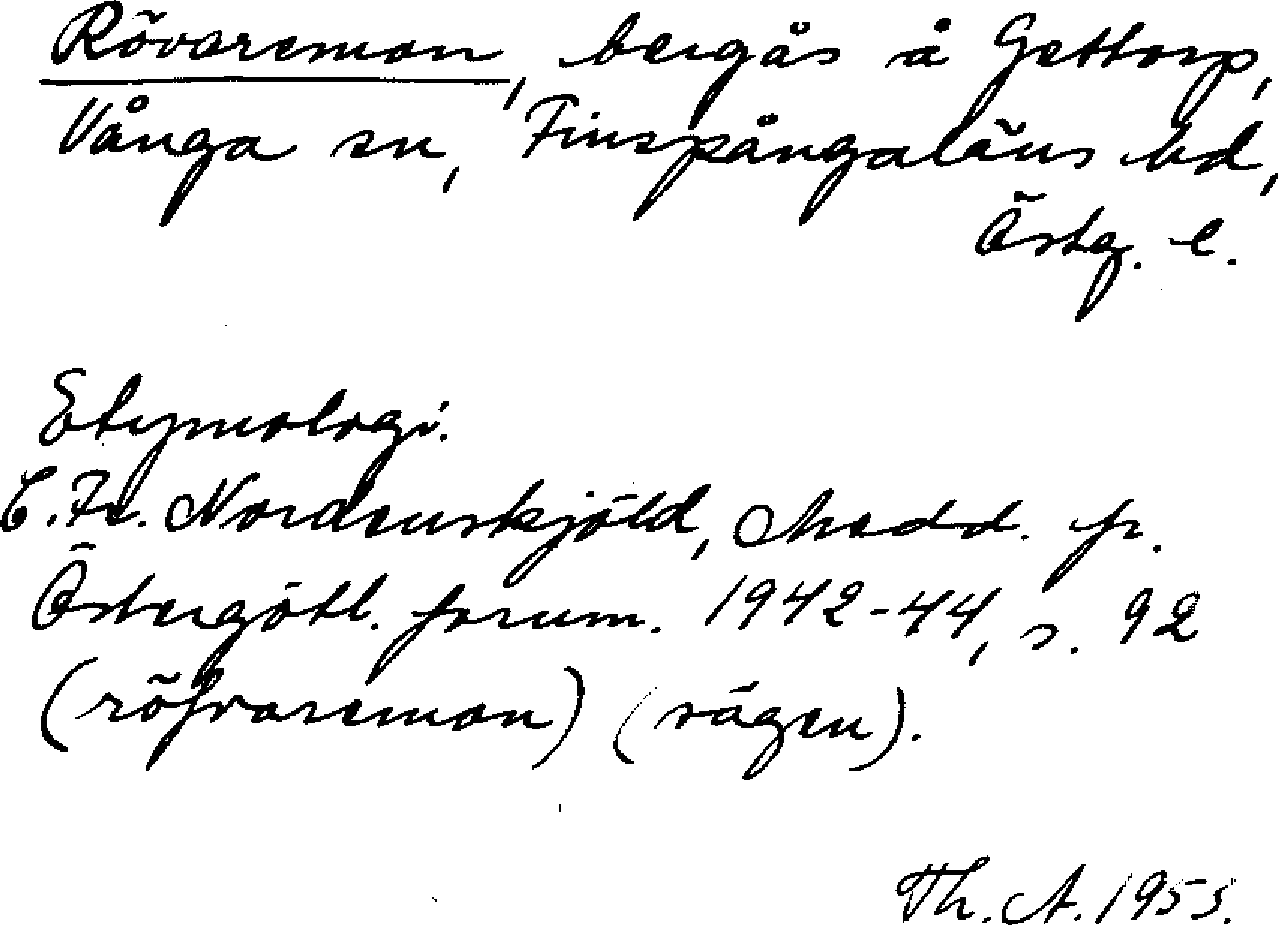 Rövaremon, bergås å Gettorp,
Vånga sn, Finspångaläns hd,
Östg. l.
Etymologi.
C. Fr. Nordenskjöld, Medd. fr.
Östergötl. fornm. 1942-44, s. 92
(röfvaremon) (sägen).
Th. A. 1953.